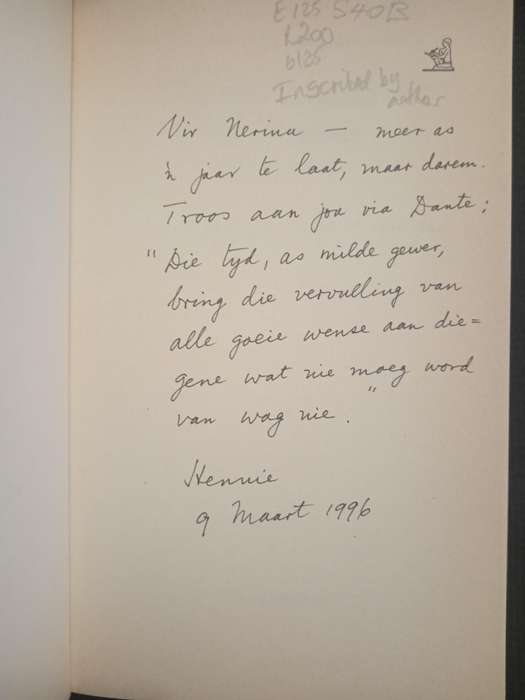 E125 S40B
R200
b125
Inscribed by
author
Vir Nerina — meer as
'n jaar te laat, maar darem.
Troos aan jou via Dante:
"Die tyd, as milde gewer,
bring die vervulling van
alle goeie wense aan die=
gene wat nie moeg word
van wag nie."
Hennie
9 Maart 1996